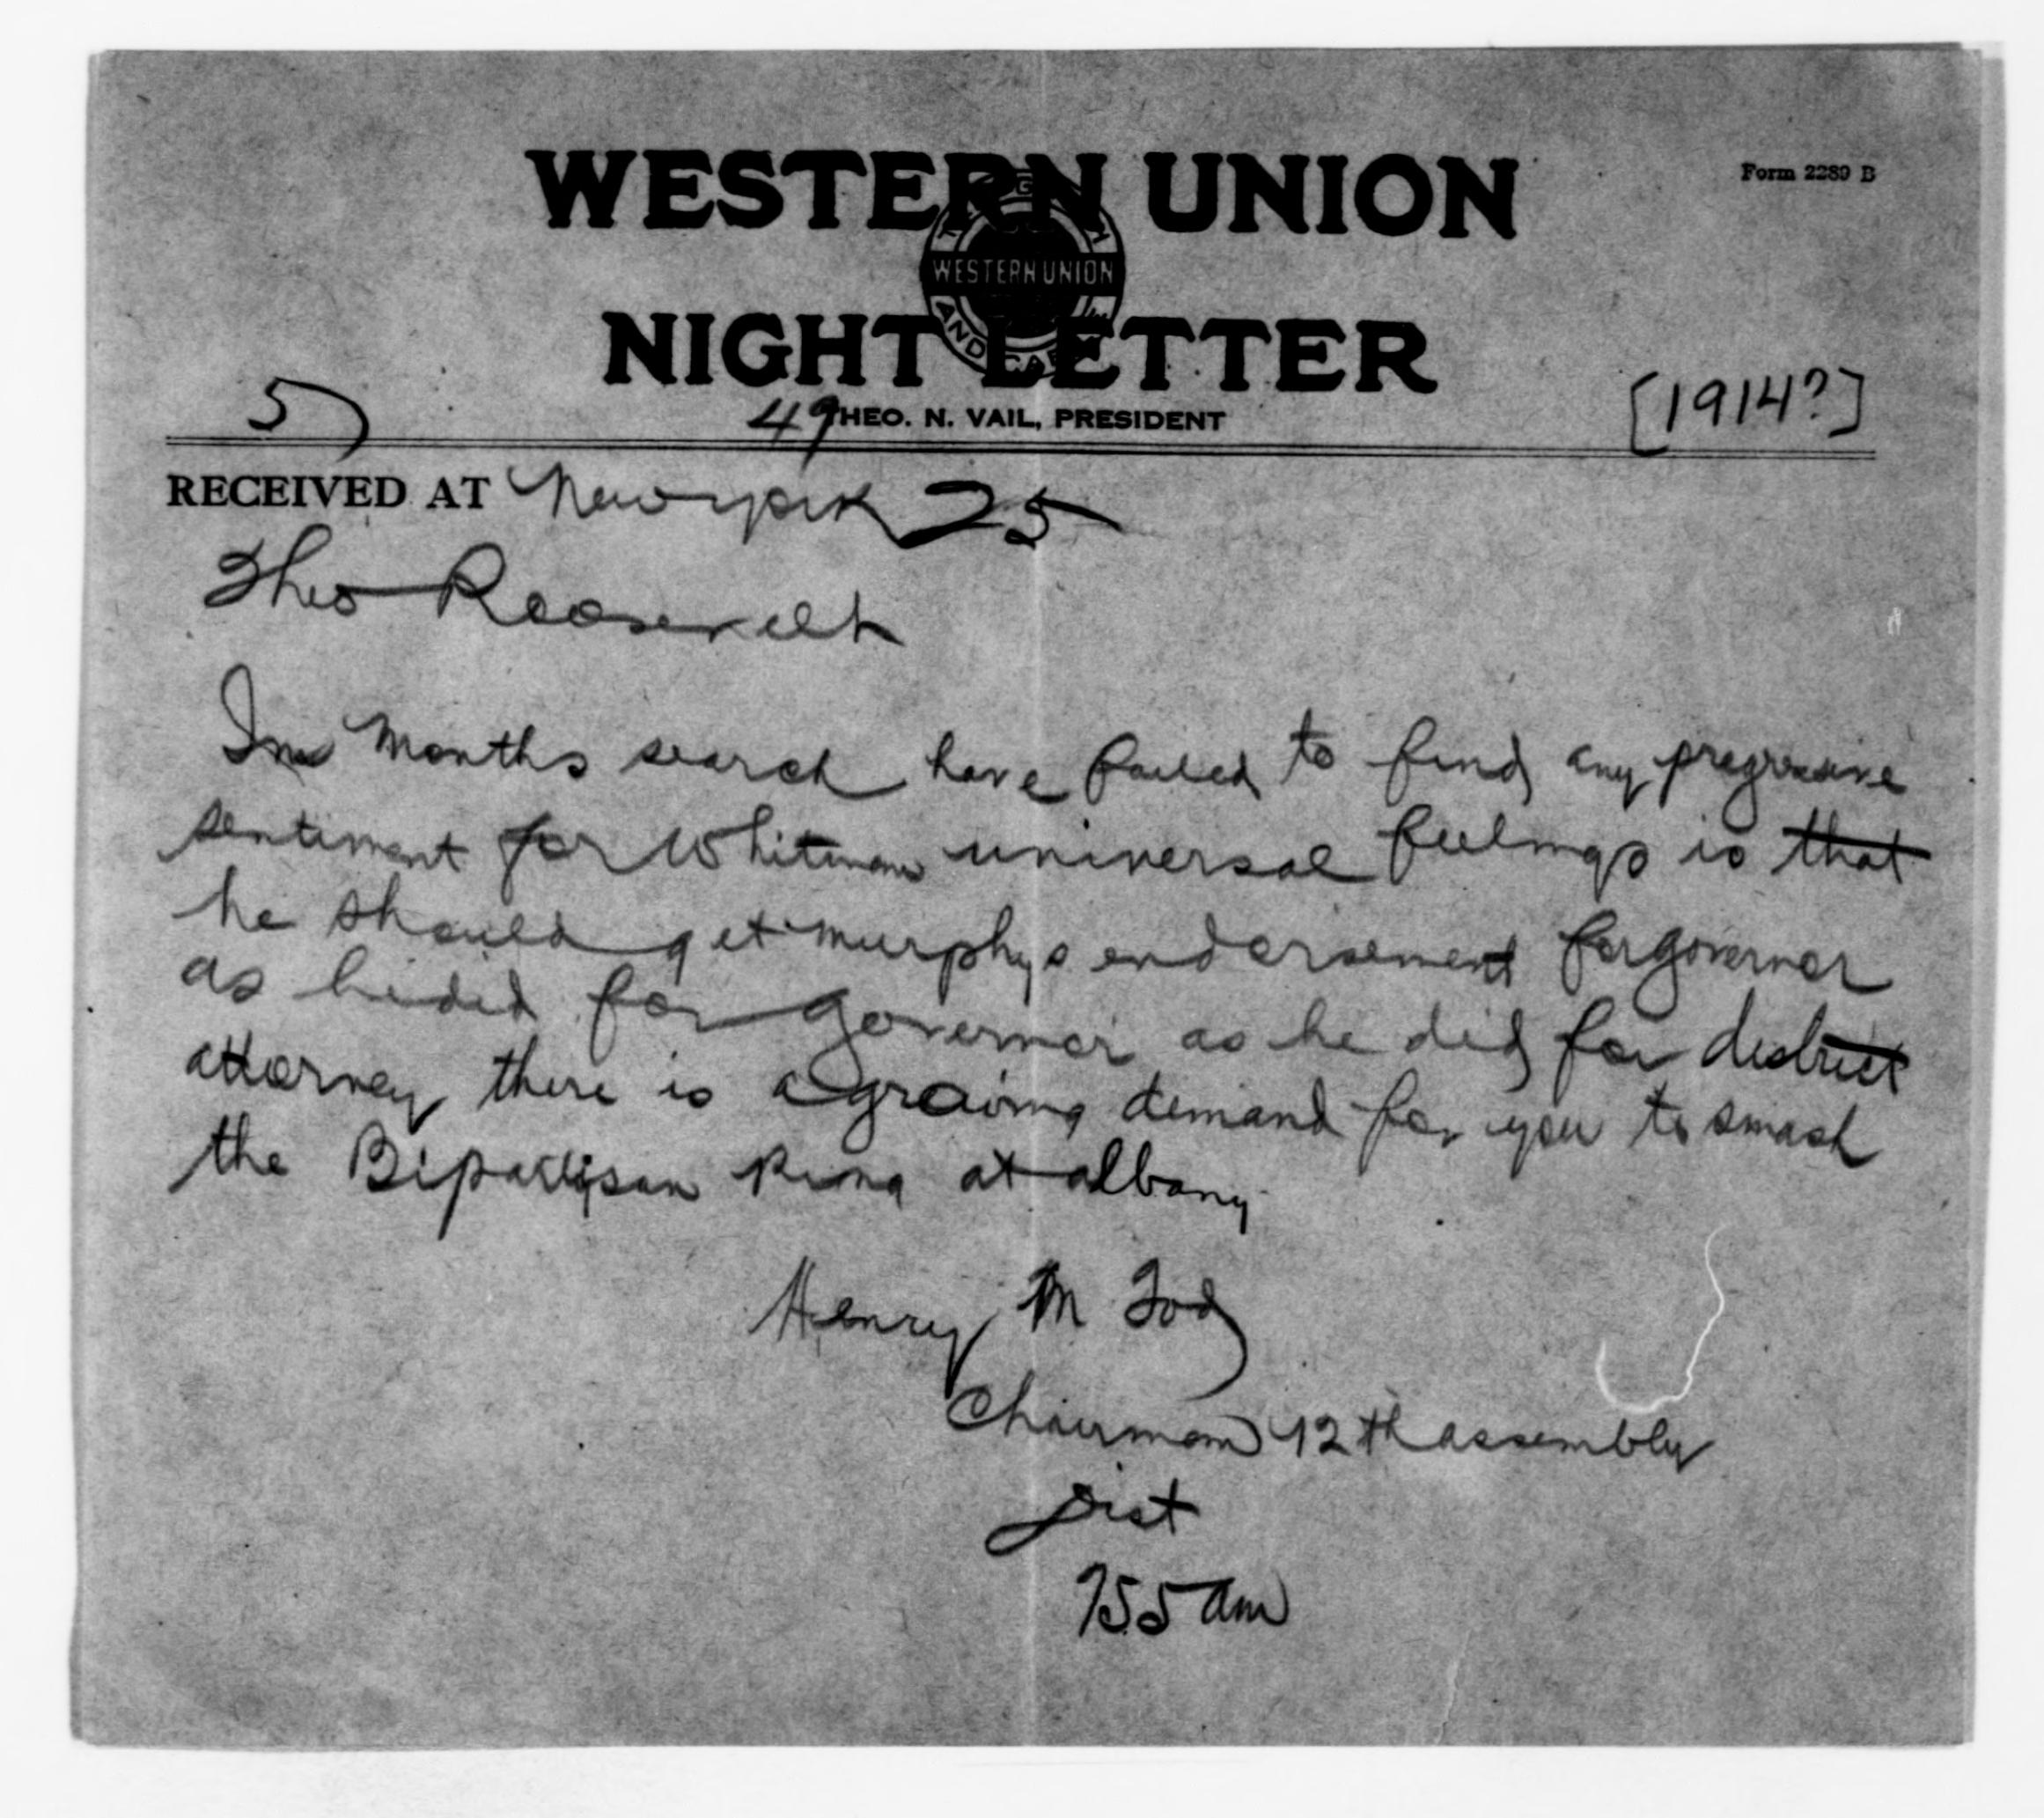 WESTERN UNION
Form 2289 B
WESTERN UNION
NIGHT LETTER
5
49
THEO. N. VAIL, PRESIDENT
[1914?]
RECEIVED AT New york 25
Theo Roosevelt
In months search have failed to find any progressive
sentiment for Whitman universal feelings is that
he should get murphys endorsement for governor
as he did for governor as he did for district
attorney there is a growing demand for you to smash
the Bipartisan Ring at albany
Henry M Tod
Chairman 12th assembly
Dist
755 am